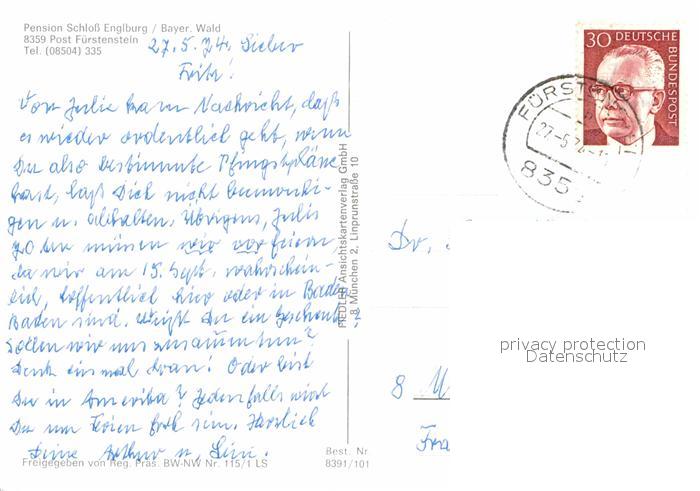 Pension Schloß Englburg / Bayer. Wald
8359 Post Fürstenstein
Tel. (08504) 335
27.5.74. Lieber
Fritz!
Von Julie kam Nachricht, daß
es wieder ordentlich geht, wenn
Du also bestimmte Pfingstpläne
hast, laß Dich nicht beunruhi-
gen u. abhalten. Übrigens, Julis
70 ter müssen wir vorfeiern,
da wir am 15. Sept. wahrschein-
lich, hoffentlich hier oder in Baden
Baden sind. Weißt Du ein Geschenk?
Sollen wir uns zusammentun?
Denk einmal dran! Oder bist
Du in Amerika? Jedenfalls wird
Du um Ferien froh sein. Herzlich
Deine Arthur u.
Freigegeben von Reg. Präs. BW-NW Nr. 115/1 LS
Best. Nr.
8391/101
HEDLER Ansichtskartenverlag GmbH
8 München 2, Linprunstraße 10
30 DEUTSCHE
BUNDESPOST
FÜRSTE
27-5.74-1
835
Dr.
8 M
Fra
privacy protection
Datenschutz